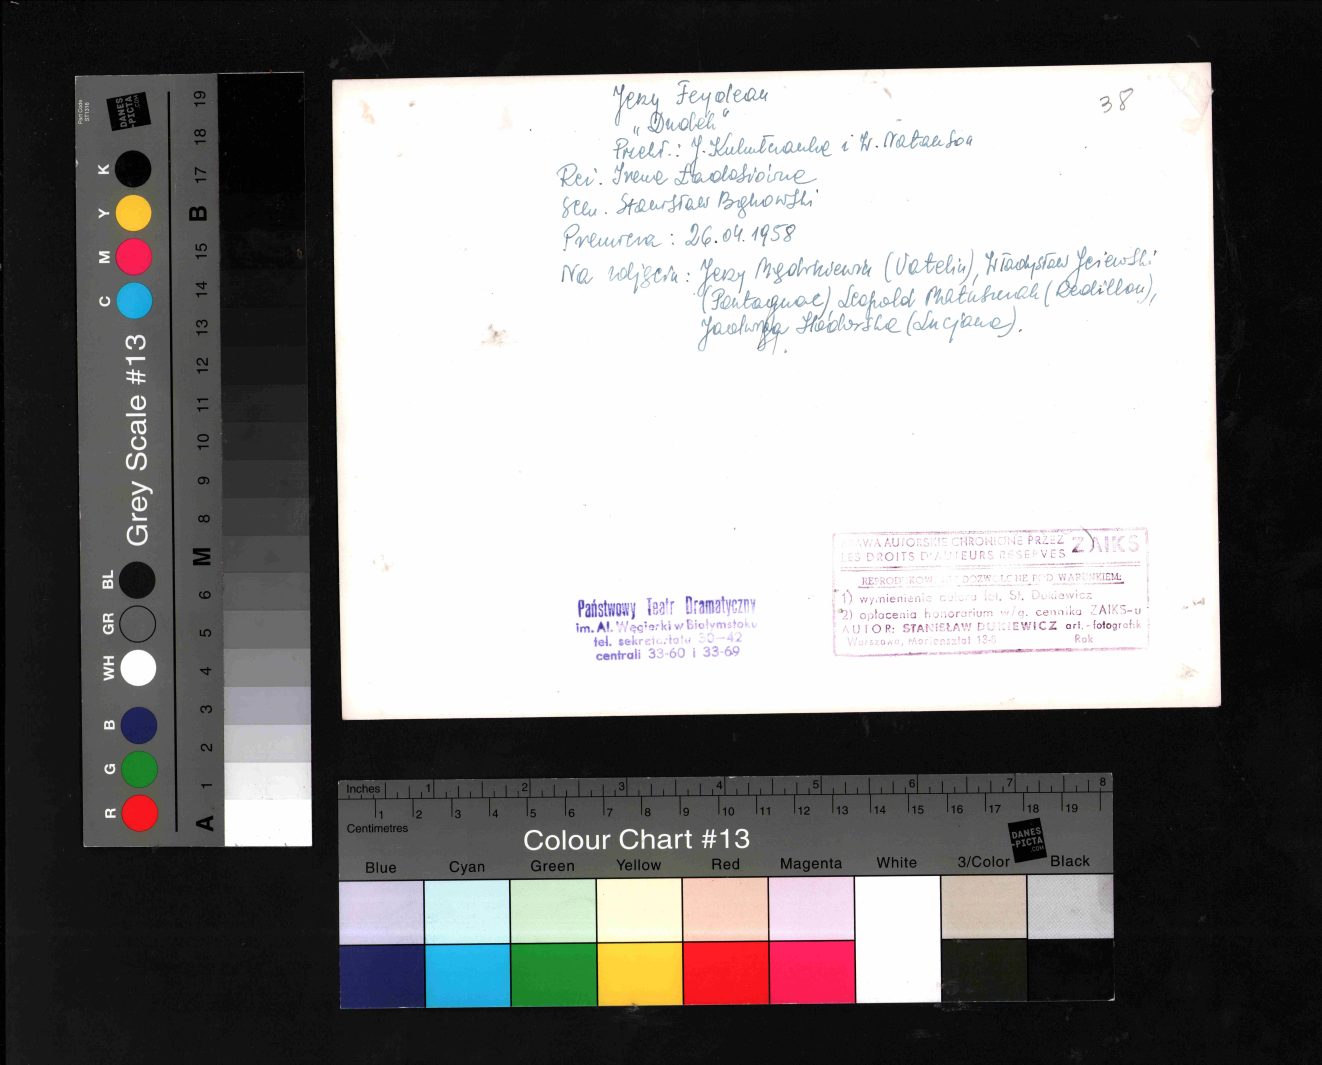 Jerzy Feydeau
„Dudek"
Przekł.: J. i W. Natanson
Reż. Irena Ładosiówna
Scen. Stanisław Bąkowski
Premiera : 26.04.1958
Na zdjęciu : Jerzy (Vatelin), Władysław Jeżewski
(Pontagnac) Leopold Matuszczak (Redillon),
Jadwiga (Lucjana).
38
Państwowy Teatr Dramatyczny
im. Al. Węgierki w Białymstoku
tel. sekretariatu 30-42
centrali 33-60 i 33-69
PRAWA AUTORSKIE CHRONIONE PRZEZ ZAIKS
LES DROITS D'AUTEURS RESERVES
REPRODUKOWANIE DOZWOLONE POD WARUNKIEM:
1) wymienienia autora fot. St. Dukiewicz
2) opłacenia honorarium w/g. cennika ZAIKS-u
AUTOR: STANISŁAW DUKIEWICZ art.-fotografik
Warszawa, Mariensztat Rok
Part Code
ST1316
DANES
-PICTA
.COM
Grey Scale #13
R G B WH GR BL C M Y K
A 1 2 3 4 5 6 M 8 9 10 11 12 13 14 15 B 17 18 19
Inches 1 2 3 4 5 6 7 8
Centimetres 1 2 3 4 5 6 7 8 9 10 11 12 13 14 15 16 17 18 19
Colour Chart #13
DANES
-PICTA
.COM
Blue Cyan Green Yellow Red Magenta White 3/Color Black